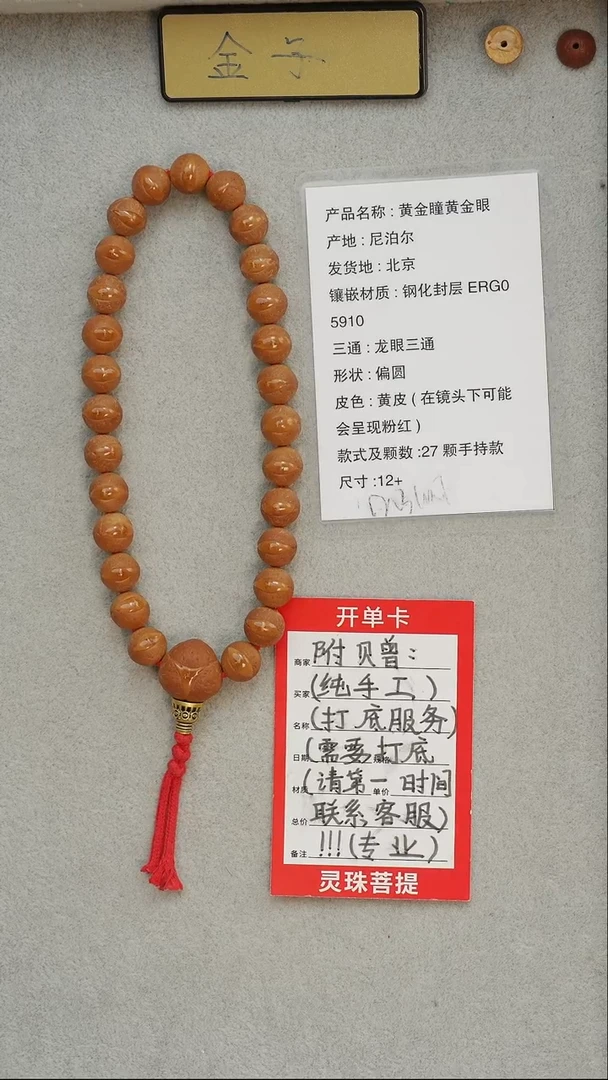 产品名称：黄金瞳黄金眼
产地：尼泊尔
发货地：北京
镶嵌材质：钢化封层 ERG0
5910
三通：龙眼三通
形状：偏圆
皮色：黄皮(在镜头下可能
会呈现粉红)
款式及颗数:27 颗手持款
尺寸:12+
开单卡
商家 附贝曾：
买家 (纯手工)
名称 (打底服务)
日期 (需要打底
材质 (请第一 单价 时间
总价 联系客服)
备注 !!!(专业)
灵珠菩提